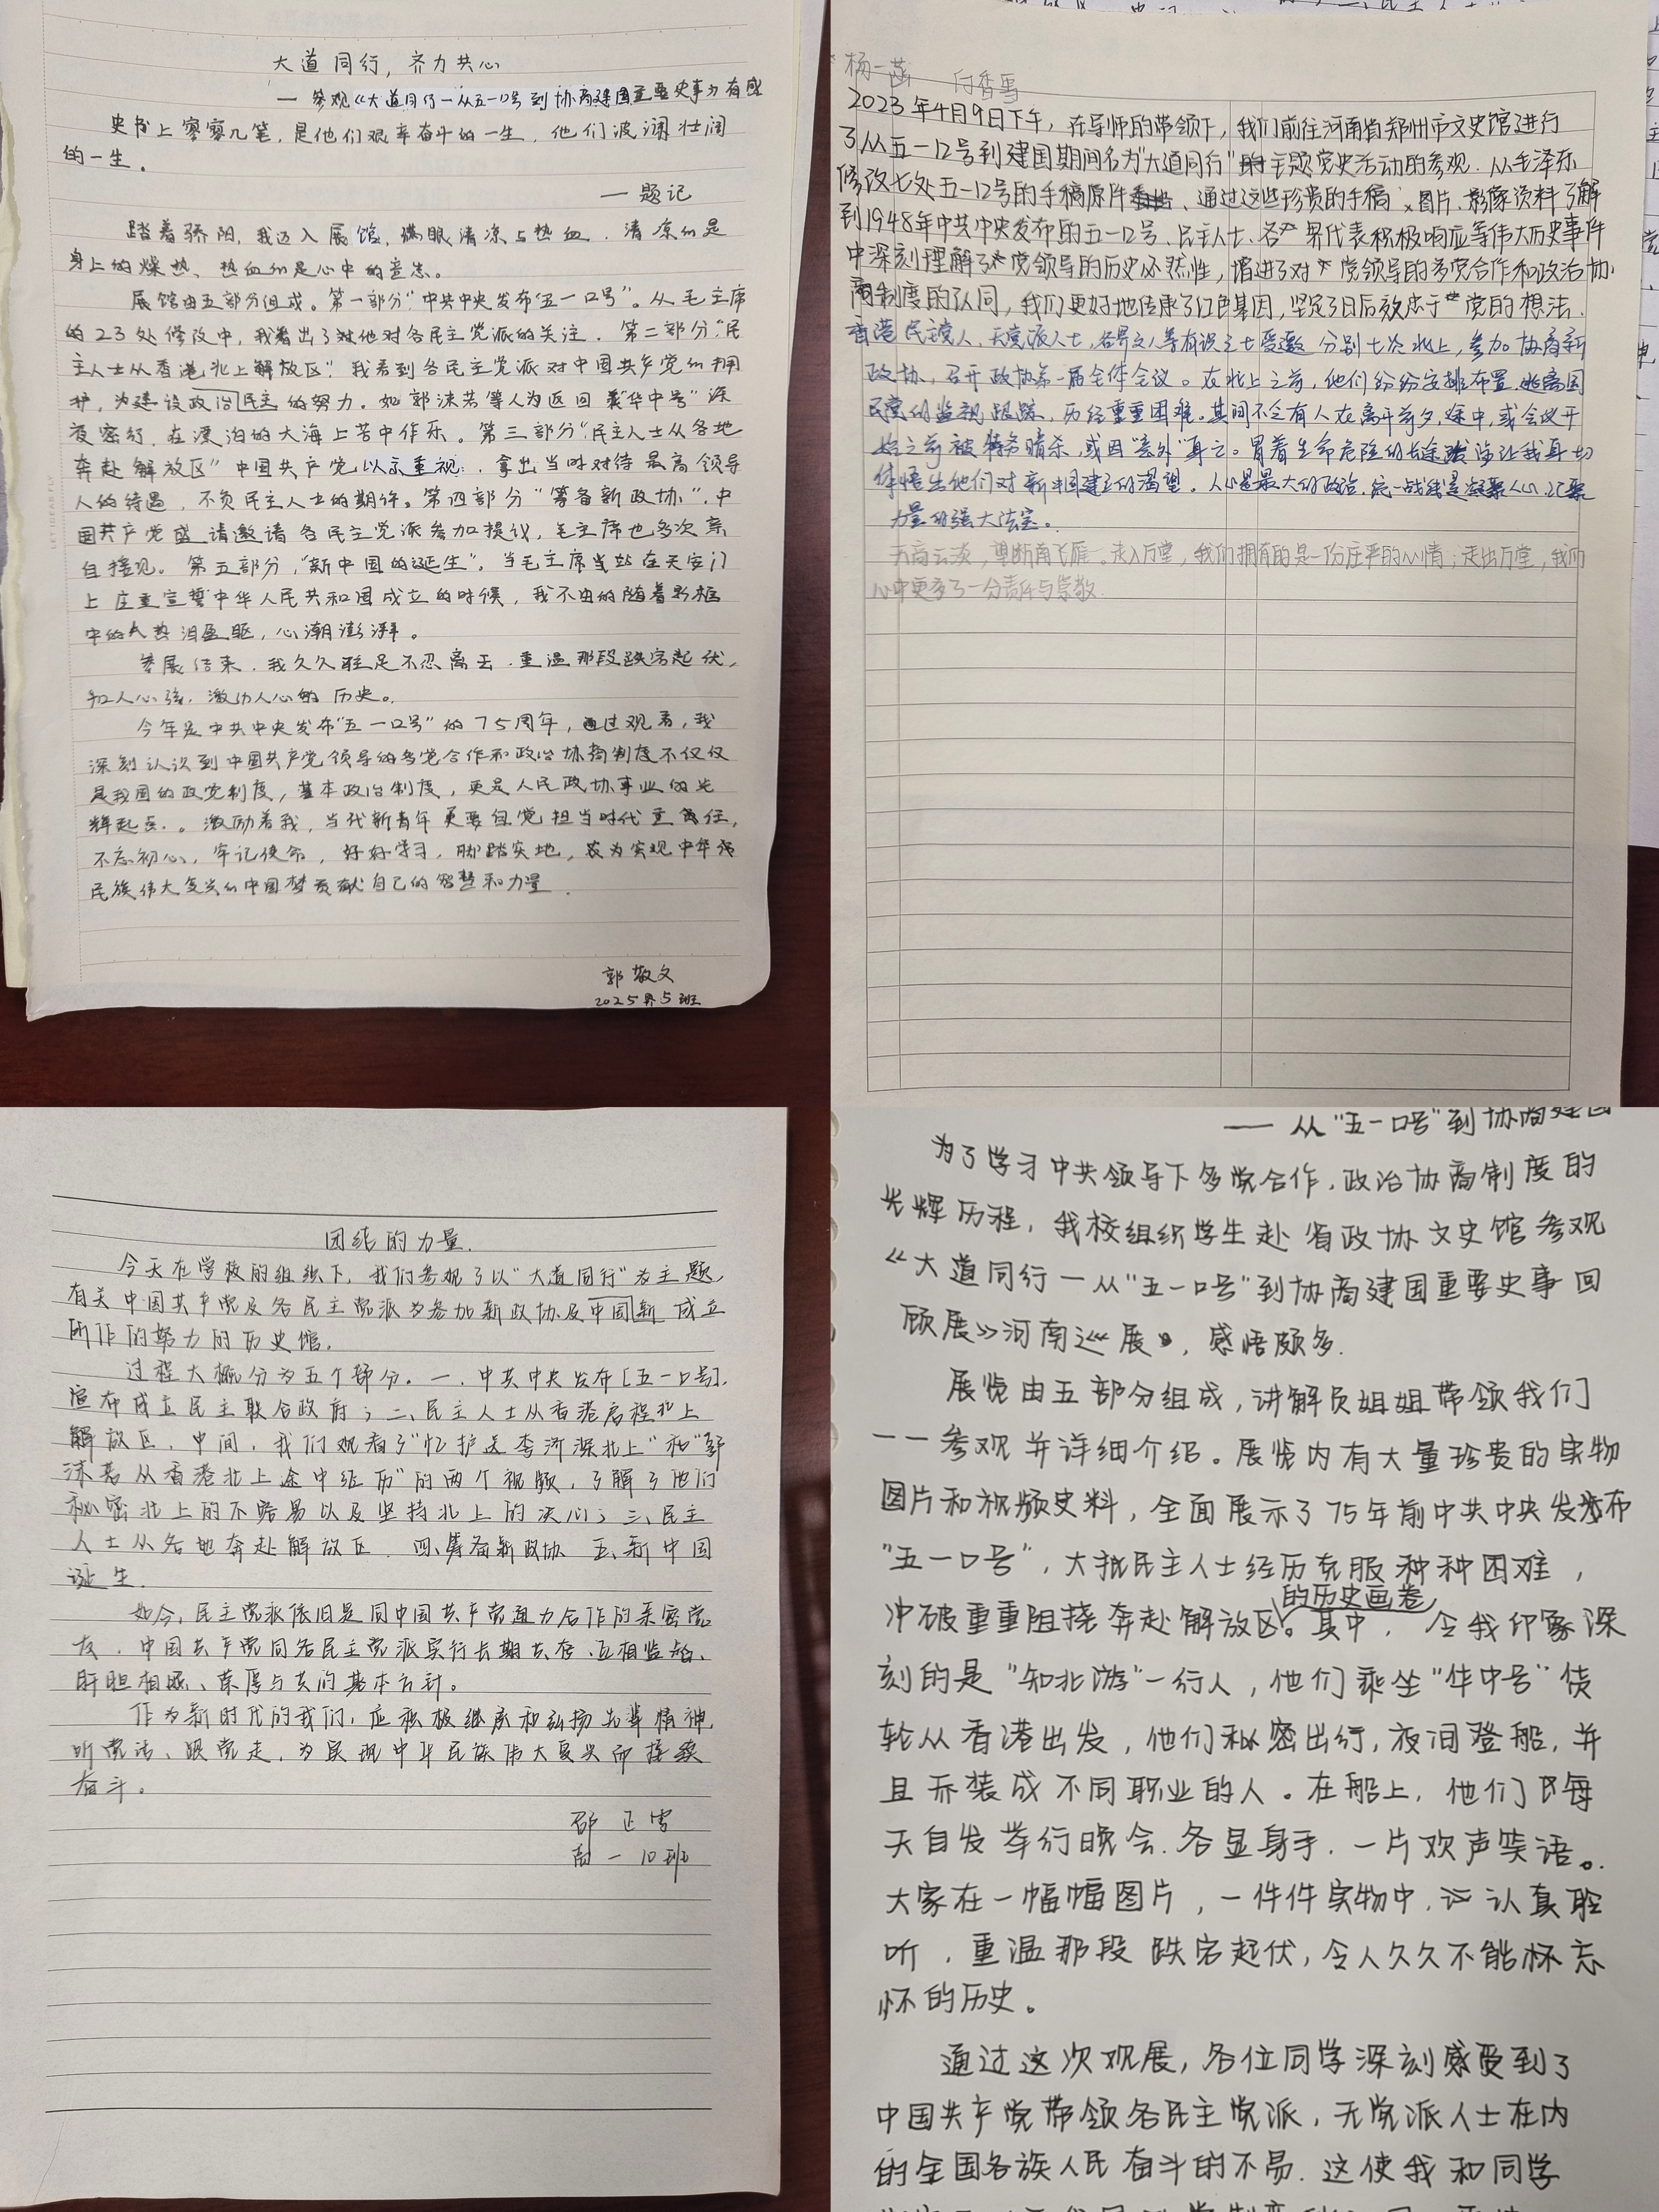 大道同行，齐力共心
— 参观《大道同行—从五一口号到协商建国重要史事》有感
史书上寥寥几笔，是他们艰辛奋斗的一生，他们波澜壮阔
的一生。
— 题记
踏着骄阳，我迈入展馆，满眼清凉与热血，清凉的是
身上的燥热，热血的是心中的意志。
展馆由五部分组成。第一部分“中共中央发布‘五一口号’”。从毛主席
的23处修改中，我看出了他对各民主党派的关注。第二部分“民
主人士从香港北上解放区”我看到各民主党派对中国共产党的拥
护，为建设政治民主的努力。如郭沫若等人为返回乘“华中号”深
夜密行，在漂泊的大海上苦中作乐。第三部分“民主人士从各地
奔赴解放区”中国共产党以示重视，拿出当时对待最高领导
人的待遇，不负民主人士的期许。第四部分“筹备新政协”，中
国共产党盛请邀请各民主党派参加提议，毛主席也多次亲
自接见。第五部分，“新中国的诞生”，当毛主席站在天安门
上庄重宣誓中华人民共和国成立的时候，我不由的随着影框
中的人热泪盈眶，心潮澎湃。
参展结束，我久久驻足不忍离去，重温那段跌宕起伏，
扣人心弦，激动人心的历史。
今年是中共中央发布“五一口号”的75周年，通过观看，我
深刻认识到中国共产党领导的多党合作和政治协商制度不仅仅
是我国的政党制度，基本政治制度，更是人民政协事业的光
辉起点。激励着我，当代新青年更要自觉担当时代重责任，
不忘初心，牢记使命，好好学习，脚踏实地，去为实现中华
民族伟大复兴的中国梦贡献自己的智慧和力量。
郭敬文
2025届5班
杨一菡 闫香雪
2023年4月9日下午，在导师的带领下，我们前往河南省郑州市文史馆进行
了从五一口号到建国期间名为“大道同行”的主题党史活动的参观。从毛泽东
修改七处五一口号的手稿原件、通过这些珍贵的手稿、图片、影像资料了解
到1948年中共中央发布的五一口号、民主人士、各界代表积极响应等伟大历史事件
中深刻理解了党领导的历史必然性，增进了对党领导的多党合作和政治协
商制度的认同，我们更好地传承了红色基因，坚定了日后效忠于党的想法。
香港民主党人，无党派人士，各界文人等有识之士受邀分别七次北上，参加协商新
政协，召开政协第一届全体会议。在北上之前，他们纷纷安排布置，逃离国
民党的监视跟踪，历经重重困难。其间不乏有人在离开前夕，途中，或会议开
始之前被特务暗杀，或因“意外”身亡。冒着生命危险的长途跋涉让我真切
体悟出他们对新中国建立的渴望。人心是最大的政治，统一战线是凝聚人心，汇聚
力量的强大法宝。
天高云淡，望断南飞雁。走入厅堂，我们拥有的是一份庄严的心情；走出厅堂，我们
心中更多了一分责任与崇敬。
团结的力量.
今天在学校的组织下，我们参观了以“大道同行”为主题，
有关中国共产党及各民主党派为参加新政协及中国新成立
所作的努力的历史馆.
过程大概分为五个部分。一、中共中央发布[五一口号].
宣布成立民主联合政府；二、民主人士从香港启程北上
解放区，中间，我们观看了“忆护送李济深北上”和“郭
沫若从香港北上途中经历”的两个视频，了解了他们
秘密北上的不容易以及坚持北上的决心；三、民主
人士从各地奔赴解放区 四、筹备新政协 五、新中国
诞生.
如今，民主党派依旧是同中国共产党通力合作的亲密党
友，中国共产党同各民主党派实行长期共存、互相监督、
肝胆相照、荣辱与共的基本方针。
作为新时代的我们，应积极继承和弘扬先辈精神，
听党话、跟党走，为实现中华民族伟大复兴而接续
奋斗。
邵正雪
高一10班
—— 从“五一口号”到协商建国
为了学习中共领导下多党合作，政治协商制度的
光辉历程，我校组织学生赴省政协文史馆参观
《大道同行—从“五一口号”到协商建国重要史事回
顾展》河南巡展，感悟颇多.
展览由五部分组成，讲解员姐姐带领我们
一一参观并详细介绍。展览内有大量珍贵的实物
图片和视频史料，全面展示了75年前中共中央发布
“五一口号”，大批民主人士经历克服种种困难，
的历史画卷
冲破重重阻挠奔赴解放区。其中，令我印象深
刻的是“知北游”一行人，他们乘坐“华中号”货
轮从香港出发，他们秘密出行，夜间登船，并
且乔装成不同职业的人。在船上，他们每
天自发举行晚会.各显身手，一片欢声笑语。
大家在一幅幅图片，一件件实物中，认真聆
听，重温那段跌宕起伏，令人久久不能怀忘
怀的历史。
通过这次观展，各位同学深刻感受到了
中国共产党带领各民主党派，无党派人士在内
的全国各族人民奋斗的不易.这使我和同学